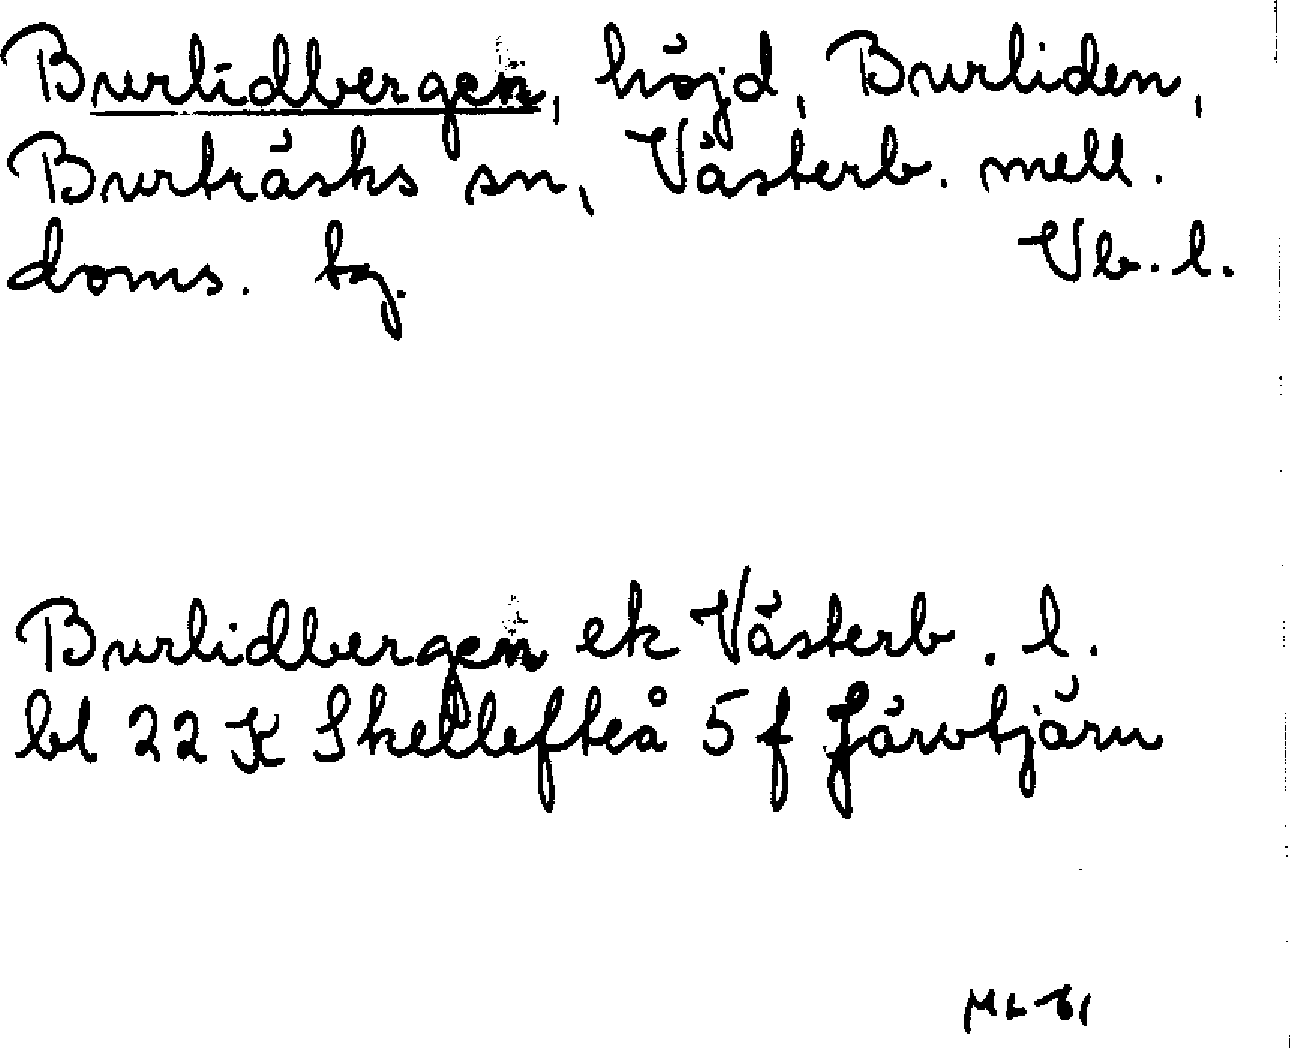 Burlidbergen, höjd, Burliden,
Burträsks sn, Västerb. mell.
doms. tg. Vb. l.
Burlidbergen ek Västerb. l.
bl 22 K Skellefteå 5 f Järvtjärn